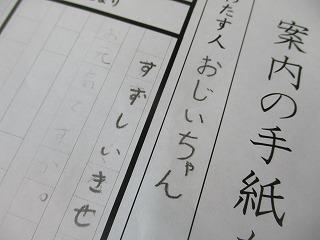 案内の手紙
わたす人 おじいちゃん
すずしいきせ